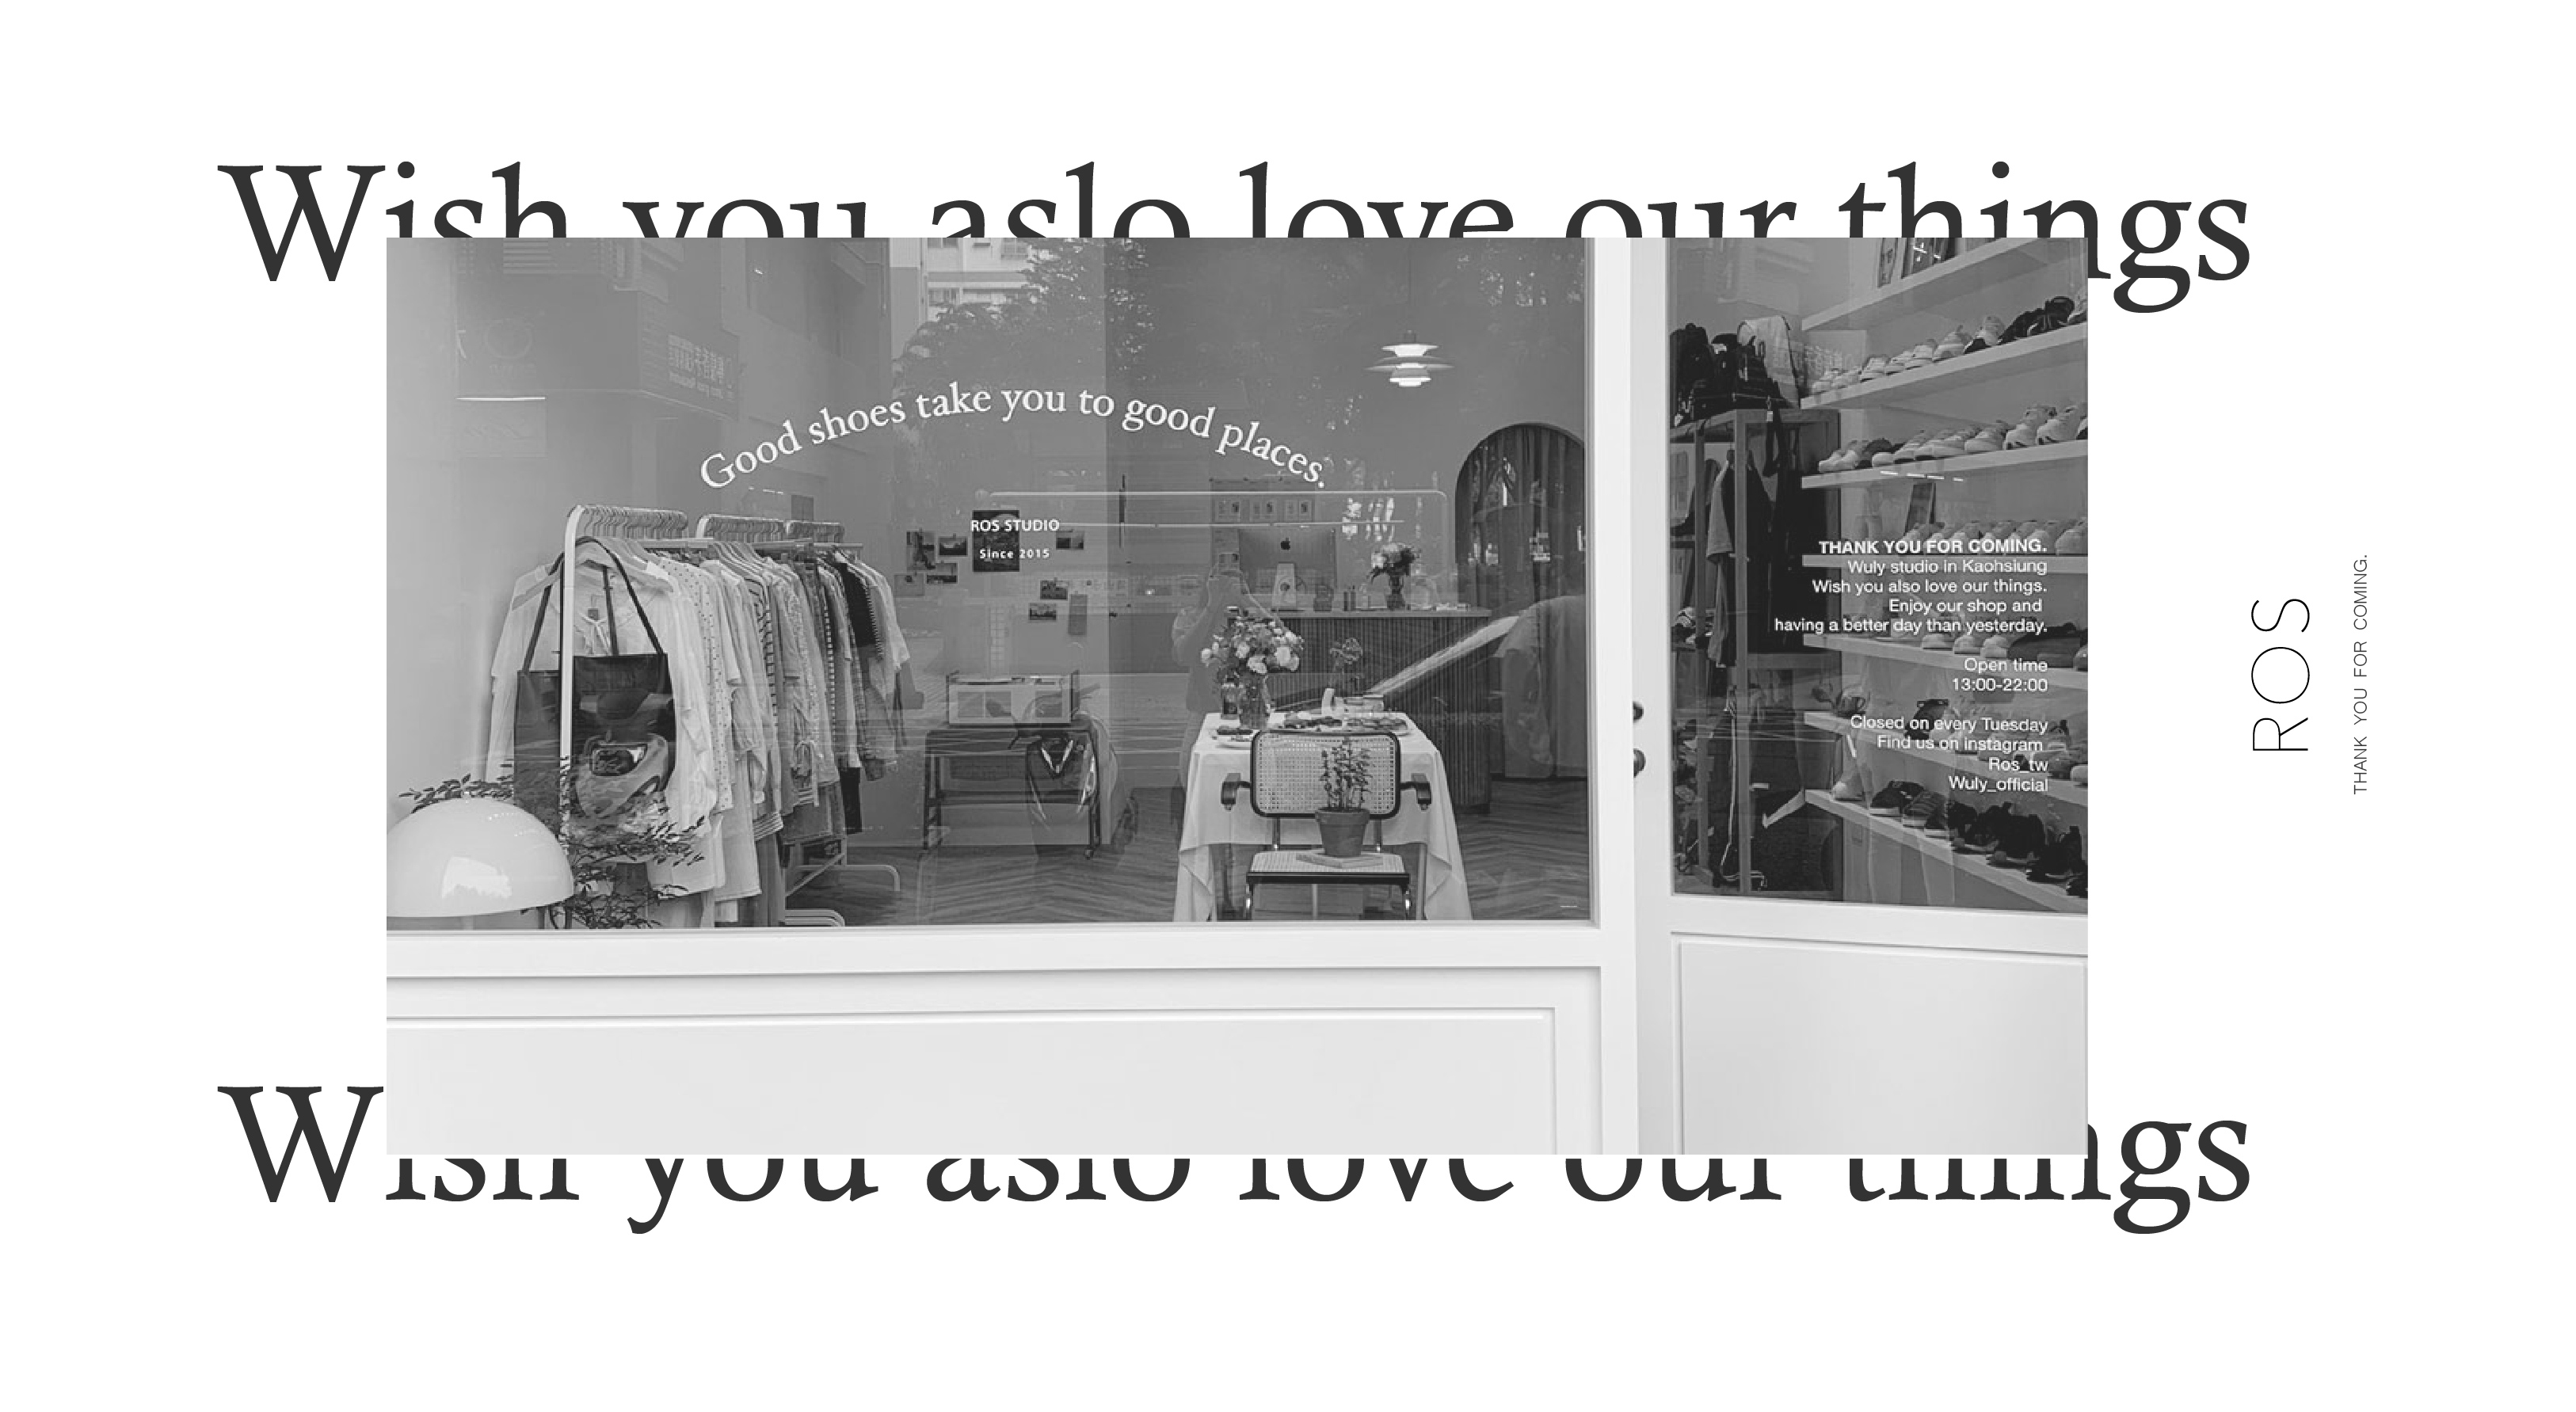 Wish you aslo love our things
Good shoes take you to good places.
ROS STUDIO
Since 2015
THANK YOU FOR COMING.
Wuly studio in Kaohsiung
Wish you also love our things.
Enjoy our shop and
having a better day than yesterday.
Open time
13:00-22:00
Closed on every Tuesday
Find us on instagram
Ros_tw
Wuly_official
ROS
THANK YOU FOR COMING.
Wish you aslo love our things